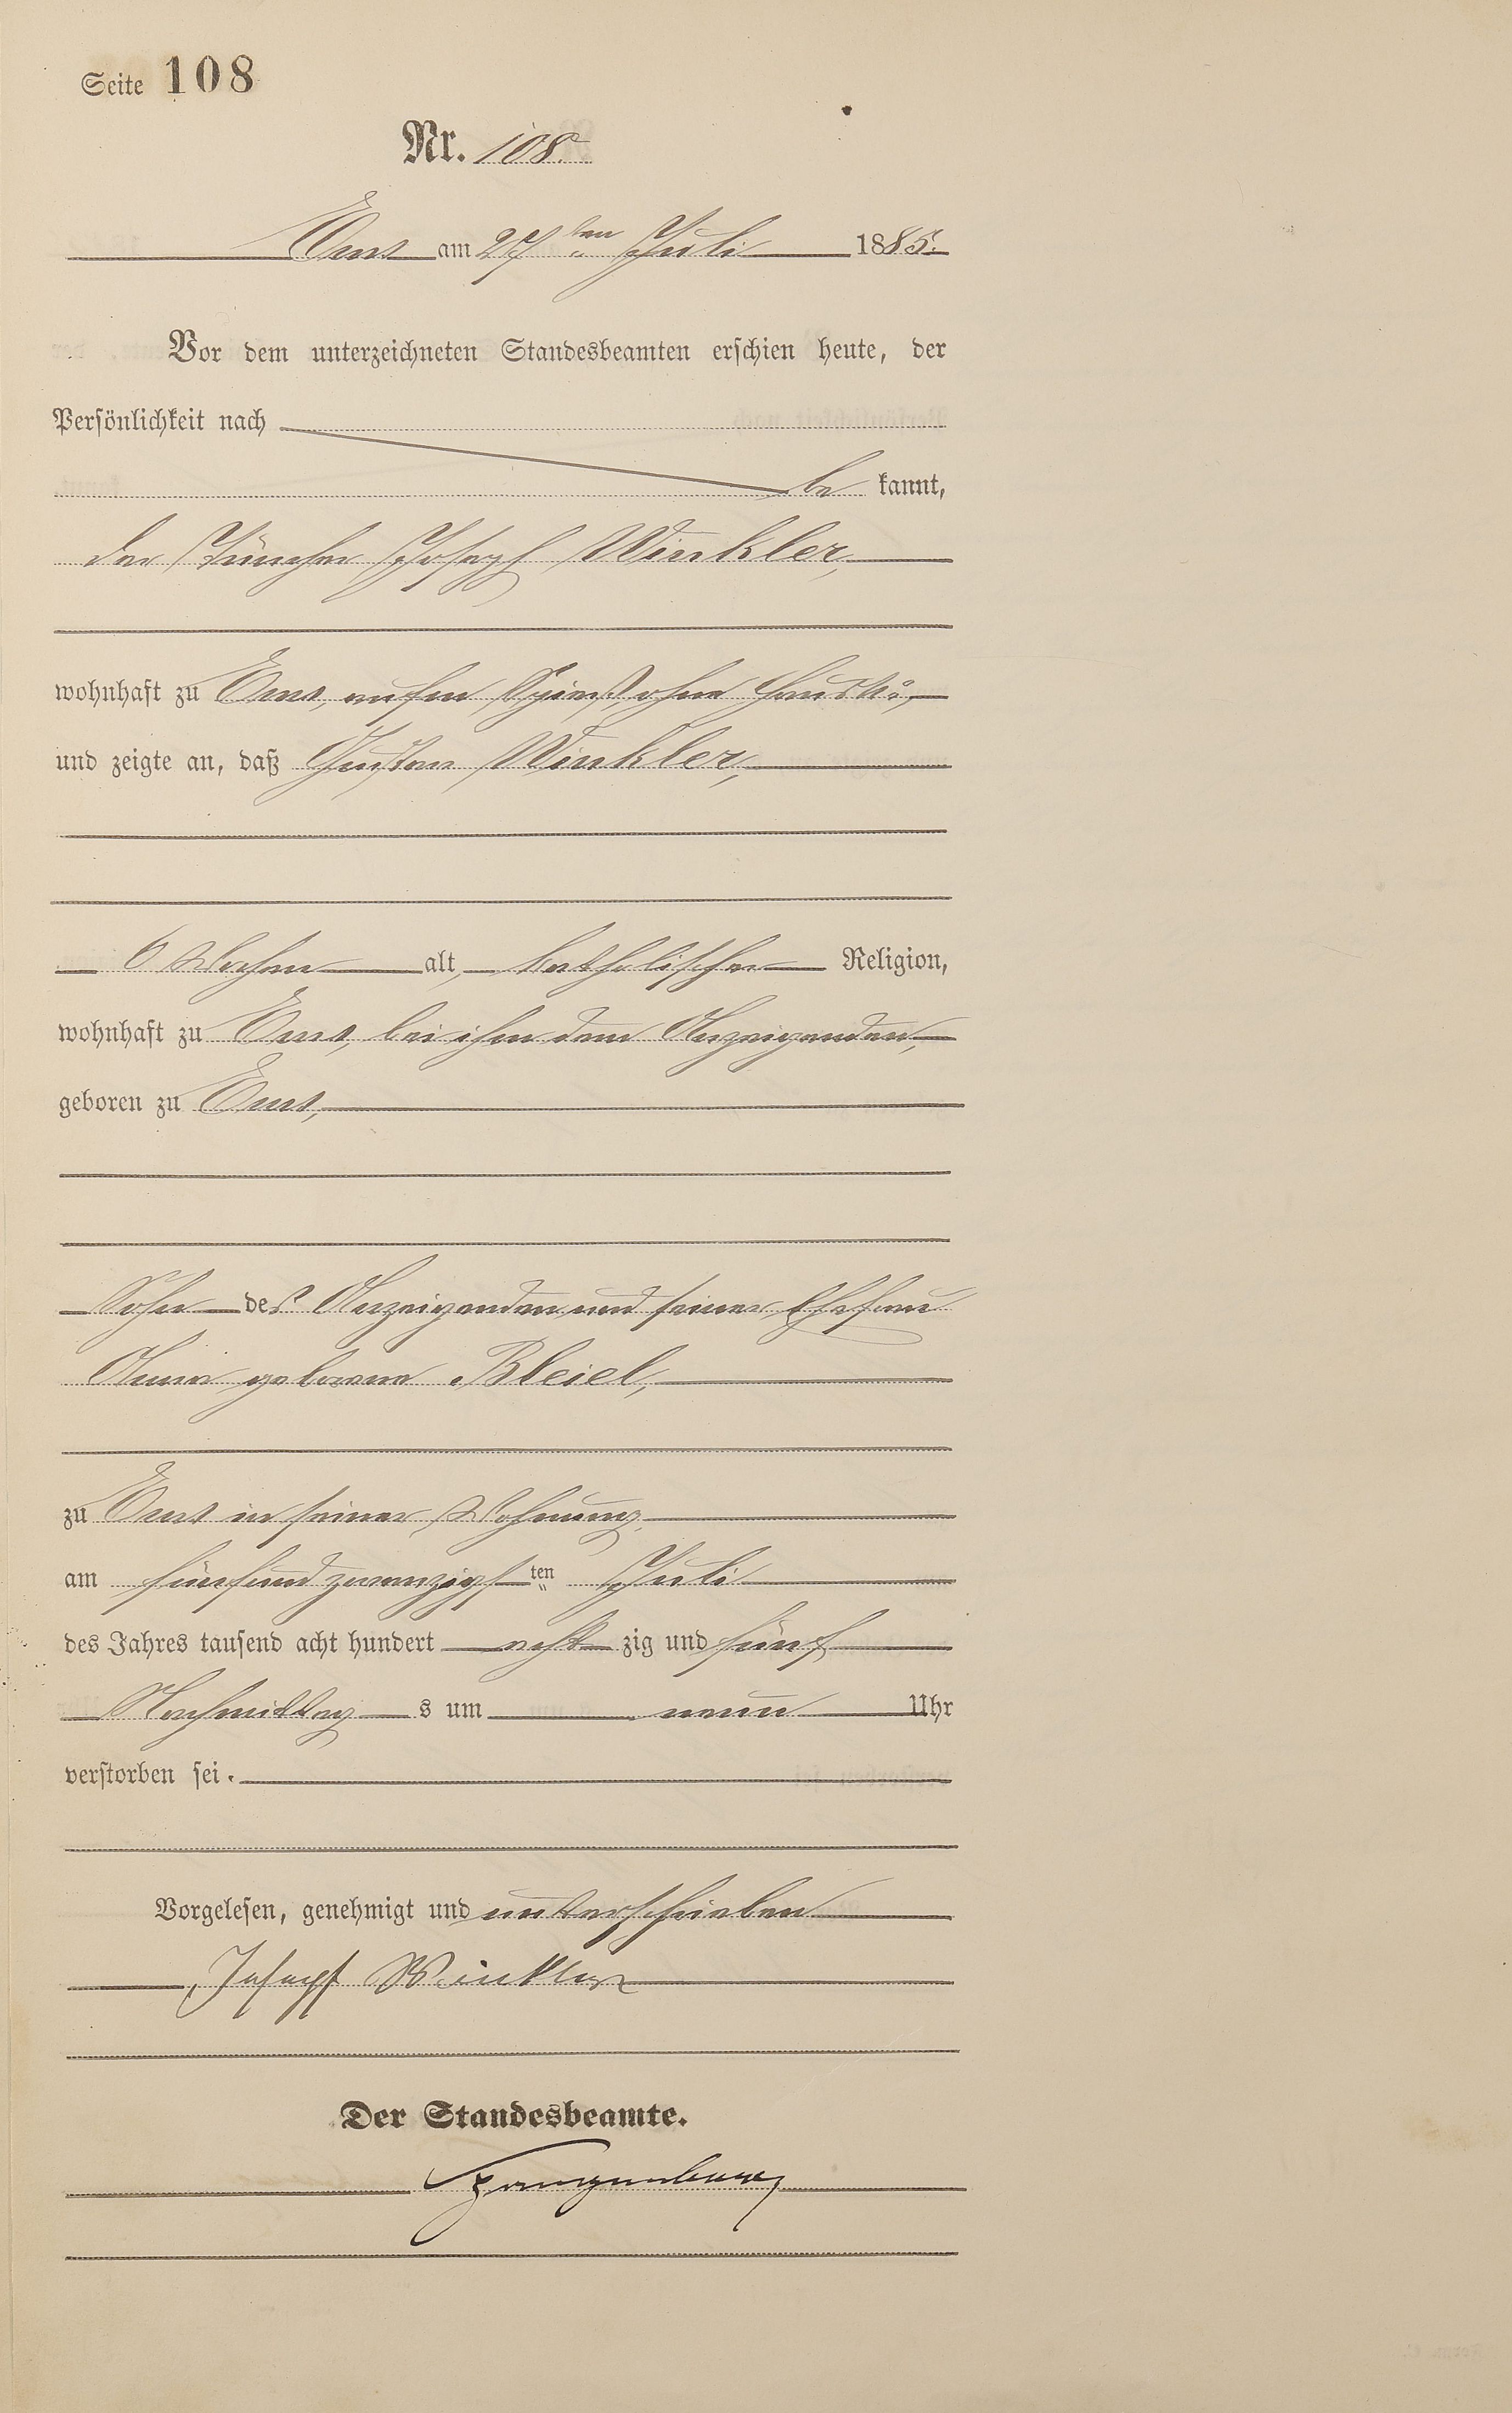 Seite 108
Nr. 108.
Ems am 27ten Juli 1885.
Vor dem unterzeichneten Standesbeamten erschien heute, der
Persönlichkeit nach
be kannt,
der Tüncher Joseph Winkler,
wohnhaft zu Ems, aufm Spieß, ohne Haus№,
und zeigte an, daß Gustav Winkler,
6 Wochen alt, katholischer Religion,
wohnhaft zu Ems, bei ihm dem Anzeigenden,
geboren zu Ems,
Sohn des Anzeigenden und seiner Ehefrau
Anna geborene Bleiel,
zu Ems in seiner Wohnung,
am fünfundzwanzigsten Juli
des Jahres tausend acht hundert acht zig und fünf
Nachmittag s um neun Uhr
verstorben sei.
Vorgelesen, genehmigt und unterschrieben
Joseph Winkler
Der Standesbeamte.